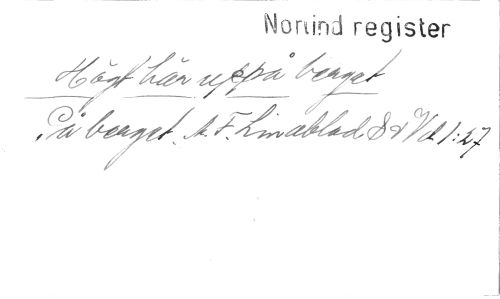 Norlind register
Högt här uppå berget
På berget. A. F. Lindblad S & V d. 1:27